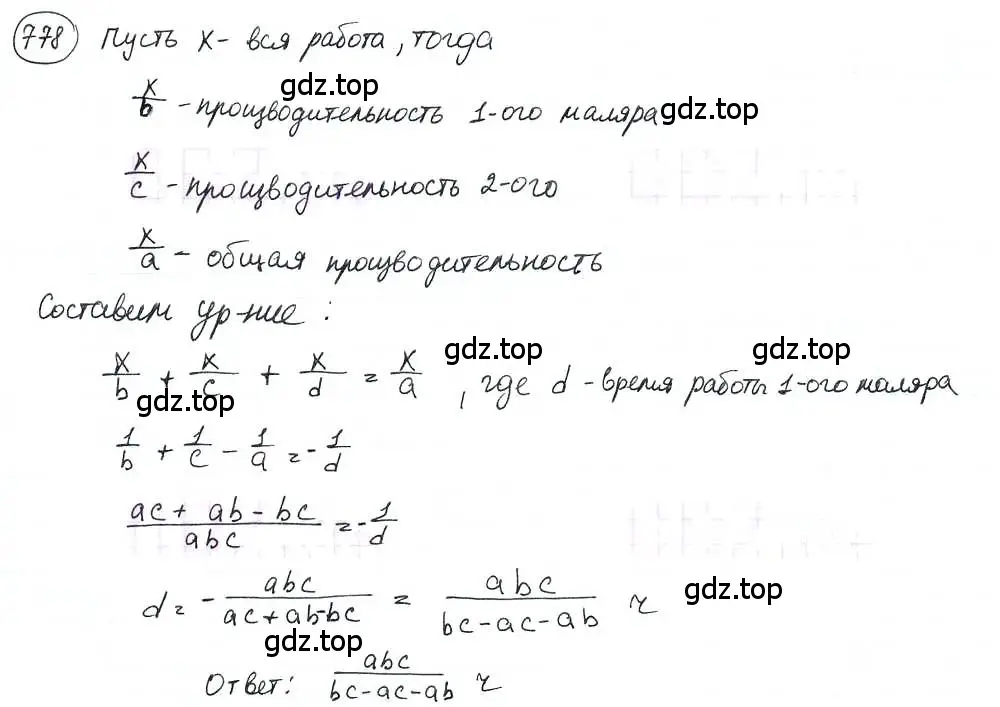 778 Пусть x - вся работа, тогда
x/b - производительность 1-ого маляра
gdz.top gdz.top
x/c - производительность 2-ого
x/a - общая производительность
Составим ур-ние:
gdz.top gdz.top
x/b + x/c + x/d = x/a, где d - время работы 1-ого маляра
gdz.top
1/b + 1/c - 1/a = - 1/d
(ac + ab - bc)/abc = - 1/d
d = - abc/(ac + ab - bc) = abc/(bc - ac - ab) ч
gdz.top
gdz.top
Ответ: abc/(bc - ac - ab) ч